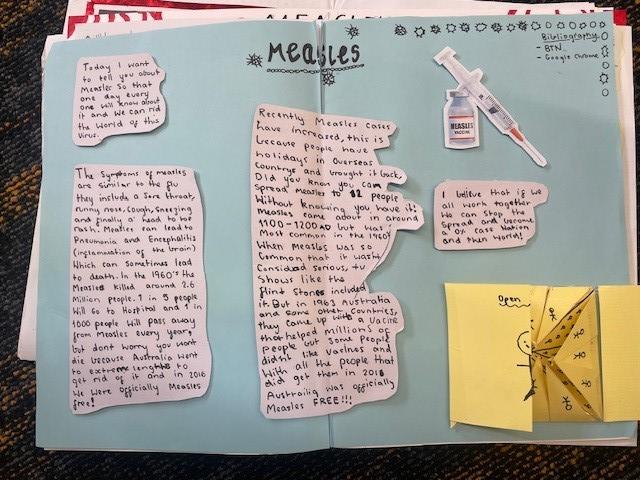 MEASLES
Measles
Bibliography
- BTN
- Google Chrome
Today I want
to tell you about
Measles So that
one day every
one will know about
it and we can rid
the world of this
Virus.
MEASLES
VACCINE
Recently Measles cases
have increased, this is
because people have
holidays in overseas
Countrys and brought it back.
Did you know you can
spread measles to 12 people
Without knowing you have it!
Measles came about in around
1100-1200AD but was
Most common in the 1960s
When Measles was so
Common that it wasnt
Considered serious, tv
Shows like the
flint Stones included
it. But in 1963 Australia
and some other Countries,
they came up with a Vacine
that helped millions of
people but some people
didn't like vacines and
With all the people that
did get them in 2016
Australia was officially
Measles FREE!!!
The Symptoms of measles
are similar to the flu
they include a Sore throat,
runny nose, Cough, Sneezing
and finally a head to toe
rash. Measles can lead to
Pneumonia and Encephalitis
(inflamation of the brain)
Which can sometimes lead
to death. In the 1960's the
Measles killed around 2.6
Million people. 1 in 5 people
Will go to Hospital and 1 in
1000 people will pass away
from Measles every year,
but dont worry you wont
die because Australia went
to extreme lenghts to
get rid of it and in 2016
We were officially Measles
free!
I believe that if we
all work together
We can Stop the
Spread and become
a 0% Case Nation
and then world!
Open